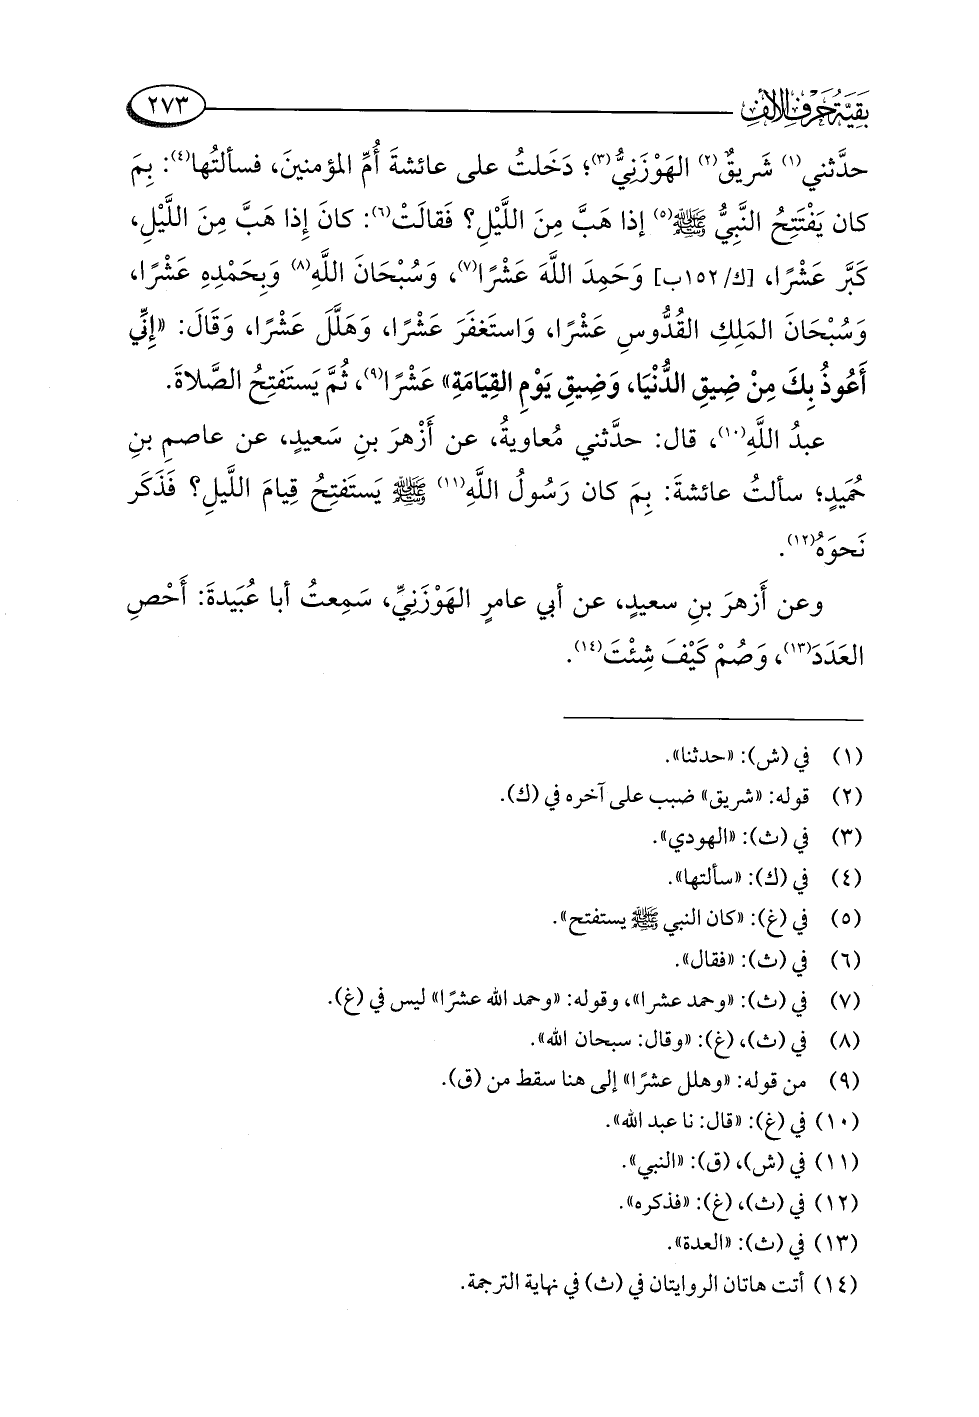 بَقِيَّة حَرْف الألف
٢٧٣
حدَّثني(١) شَريقٌ(٢) الهَوْزَنِيُّ(٣)؛ دَخَلتُ على عائشةَ أُمِّ المؤمنينَ، فسألتُها(٤): بِمَ
كان يَفْتَتِحُ النَّبِيُّ ﷺ(٥) إذا هَبَّ مِنَ اللَّيْلِ؟ فَقالَتْ(٦): كانَ إِذا هَبَّ مِنَ اللَّيْلِ،
كَبَّرَ عَشْرًا، [ك/١٥٢ب] وَحَمِدَ اللَّهَ عَشْرًا(٧)، وَسُبْحَانَ اللَّهِ(٨) وَبِحَمْدِهِ عَشْرًا،
وَسُبْحَانَ المَلِكِ القُدُّوسِ عَشْرًا، وَاستَغفَرَ عَشْرًا، وَهَلَّلَ عَشْرًا، وَقَالَ: «إِنِّي
أَعُوذُ بِكَ مِنْ ضِيقِ الدُّنْيَا، وَضِيقِ يَوْمِ القِيَامَةِ» عَشْرًا(٩)، ثُمَّ يَستَفتِحُ الصَّلاةَ.
عبدُ اللَّهِ(١٠)، قال: حدَّثني مُعاويةُ، عن أَزْهَرَ بنِ سَعيدٍ، عن عاصمِ بنِ
حُمَيدٍ؛ سألتُ عائشةَ: بِمَ كان رَسُولُ اللَّهِ(١١) ﷺ يَستَفتِحُ قِيامَ الليلِ؟ فَذَكَر
نَحوَهُ(١٢).
وعن أَزهرَ بنِ سعيدٍ، عن أبي عامرٍ الهَوْزَنِيِّ، سَمِعتُ أبا عُبَيدةَ: أَحْصِ
العَدَدَ(١٣)، وَصُمْ كَيْفَ شِئْتَ(١٤).
(١) في (ش): «حدثنا».
(٢) قوله: «شريق» ضبب على آخره في (ك).
(٣) في (ث): «الهودي».
(٤) في (ك): «سألتها».
(٥) في (غ): «كان النبي ﷺ يستفتح».
(٦) في (ث): «فقال».
(٧) في (ث): «وحمد عشرا»، وقوله: «وحمد الله عشرًا» ليس في (غ).
(٨) في (ث)، (غ): «وقال: سبحان الله».
(٩) من قوله: «وهلل عشرًا» إلى هنا سقط من (ق).
(١٠) في (غ): «قال: نا عبد الله».
(١١) في (ش)، (ق): «النبي».
(١٢) في (ث)، (غ): «فذكره».
(١٣) في (ث): «العدة».
(١٤) أتت هاتان الروايتان في (ث) في نهاية الترجمة.